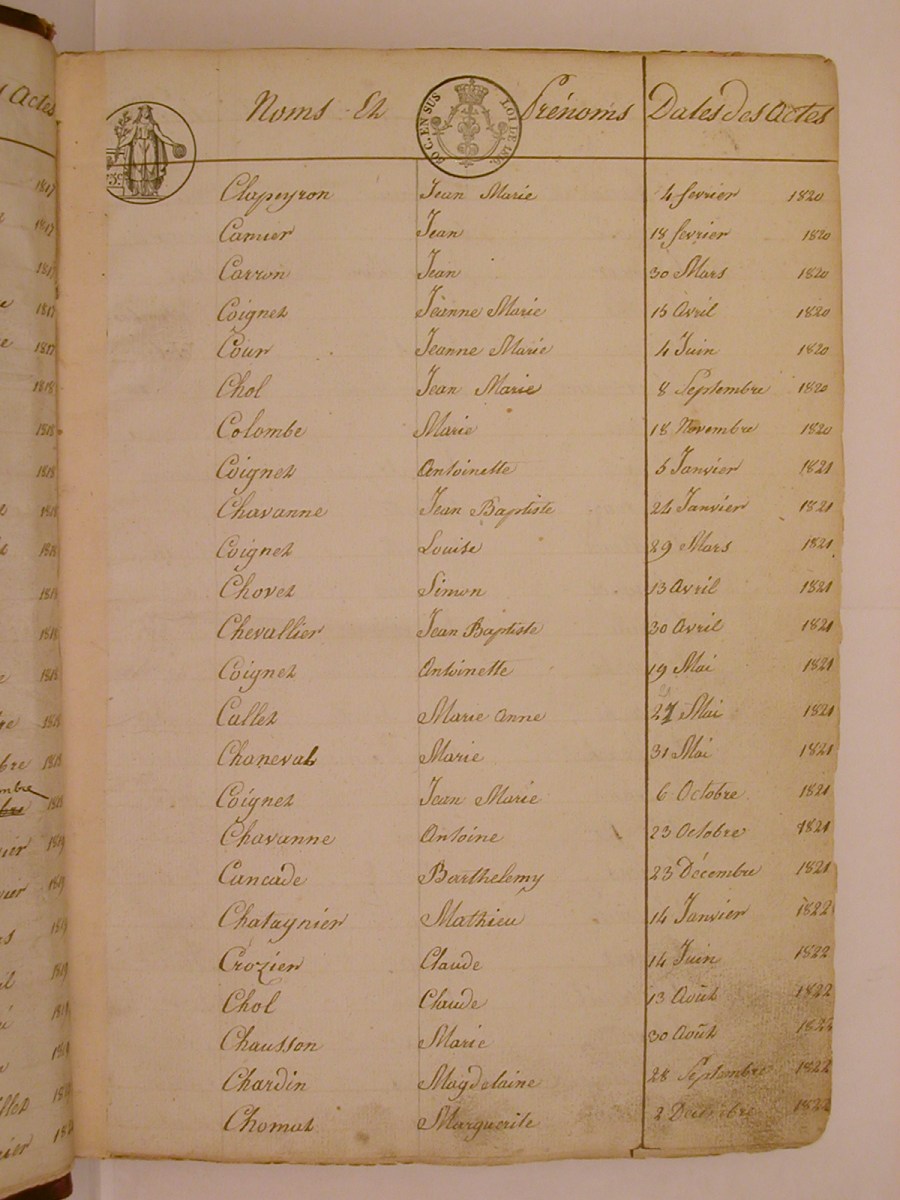 Noms Et Prénoms Dates des Actes
50 C. EN SUS LOI DE
Clapeyron Jean Marie 4 fevrier 1820
Camier Jean 18 fevrier 1820
Carron Jean 30 Mars 1820
Coignet Jeanne Marie 15 Avril 1820
Cour Jeanne Marie 4 Juin 1820
Chol Jean Marie 8 Septembre 1820
Colombe Marie 18 Novembre 1820
Coignet Antoinette 5 Janvier 1821
Chavanne Jean Baptiste 24 Janvier 1821
Coignet Louise 29 Mars 1821
Chovet Simon 13 Avril 1821
Chevallier Jean Baptiste 30 Avril 1821
Coignet Antoinette 19 Mai 1821
Callet Marie Anne Mai 1821
Chaneval Marie 31 Mai 1821
Coignet Jean Marie 6 Octobre 1821
Chavanne Antoine 23 Octobre 1821
Cancade Barthelemy 23 Décembre 1821
Chatagnier Mathieu 14 Janvier 1822
Crozier Claude 14 Juin 1822
Chol Claude 13 Août 1822
Chausson Marie 30 Août 1822
Chardin Magdelaine 28 Septembre 1822
Chomat Marguerite 2 Decembre 1822